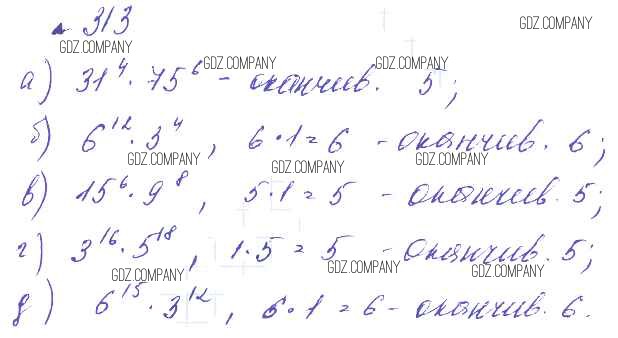 313 GDZ.COMPANY
GDZ.COMPANY
а) 31⁴ · 75⁶ – оканчив. 5; GDZ.COMPANY GDZ.COMPANY
б) 6¹² · 3⁴, 6 · 1 = 6 – оканчив. 6;
GDZ.COMPANY GDZ.COMPANY GDZ.COMPANY
в) 15⁶ · 9⁸, 5 · 1 = 5 – оканчив. 5;
г) 3¹⁶ · 5¹⁸, 1 · 5 = 5 – оканчив. 5;
GDZ.COMPANY GDZ.COMPANY GDZ.COMPANY
д) 6¹⁵ · 3¹², 6 · 1 = 6 – оканчив. 6.